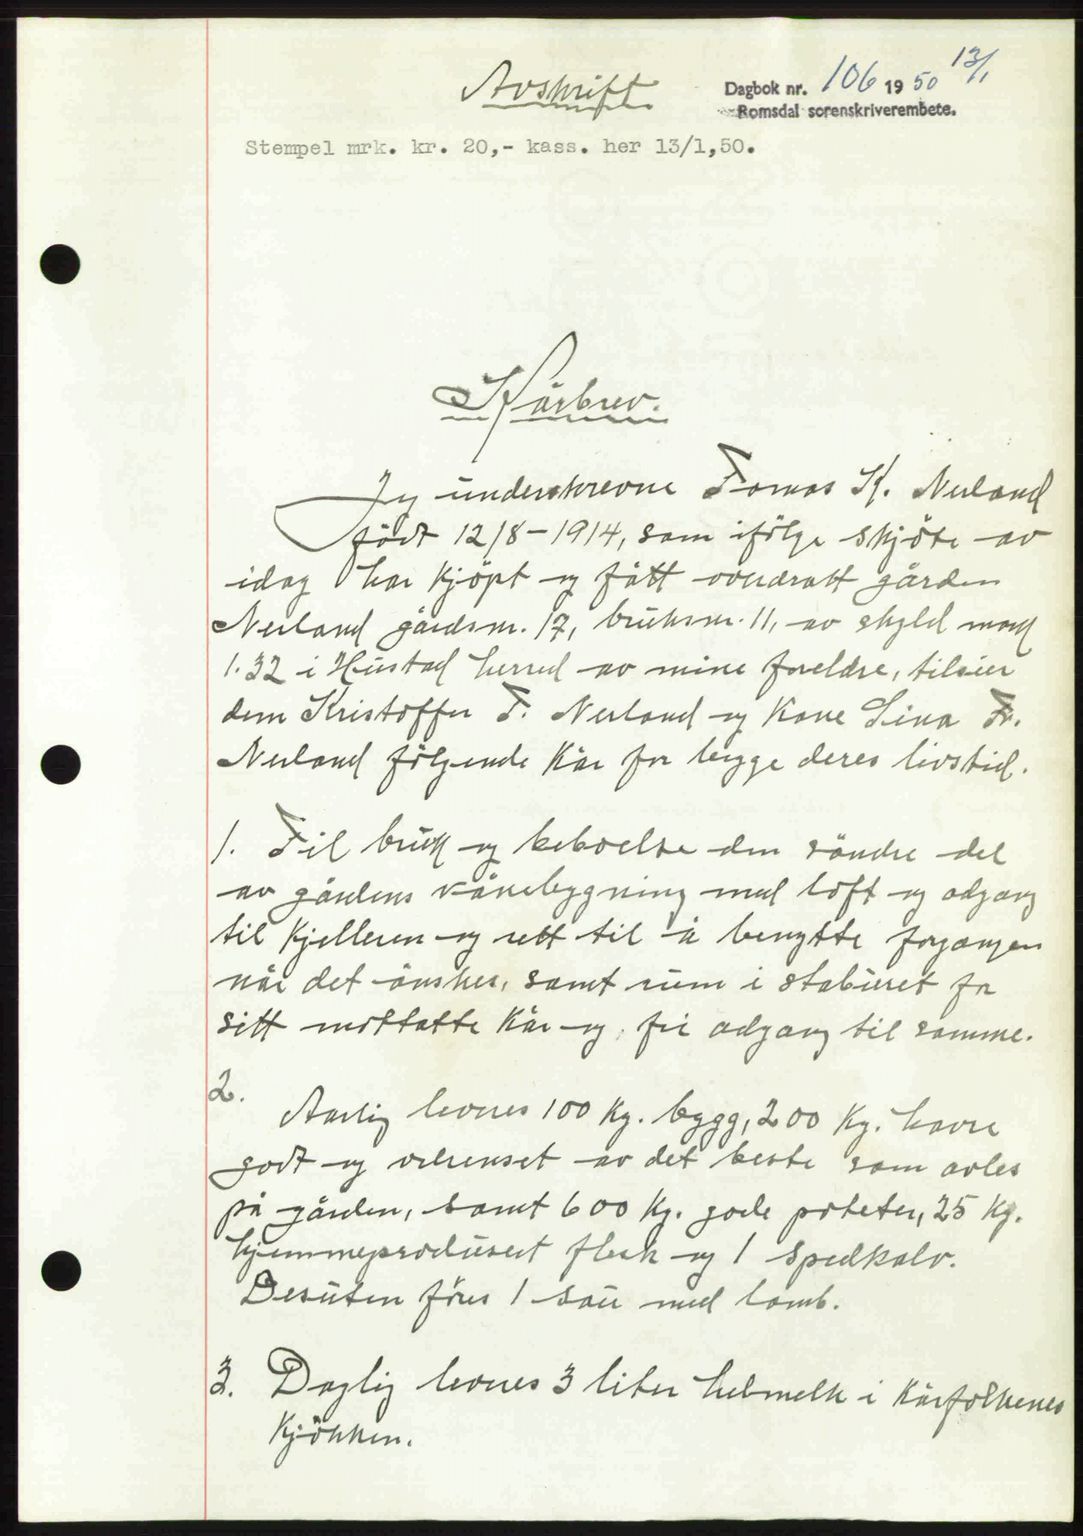 Avskrift
Dagbok nr. 106 1950 13/1
Romsdal sorenskriverembete.
Stempel mrk. kr. 20,- kass. her 13/1,50.
Kårbrev.
Jeg underskrevne Tomas K. Nerland
födt 12/8-1914, som ifölge skjöte av
idag har kjöpt og fått overdratt gården
Nerland gårdsnr. 17, bruksnr. 11, av skyld mark
1.32 i Hustad herred av mine foreldre, tilsier
dem Kristoffer T. Nerland og Kone Lina Fr.
Nerland fölgende Kår for begge deres livstid.
1. Til bruk og beboelse den söndre del
av gårdens vånebygning med loft og adgang
til kjelleren og rett til å benytte forgangen
når det önskes, samt rum i staburet for
sitt mottatte Kår og fri adgang til samme.
2.
Aarlig leveres 100 Kg. bygg, 200 Kg. havre
godt og velrenset av det beste som avles
på gården, samt 600 Kg. gode poteter, 25 Kg.
hjemmeprodusert flesk og 1 spedkalv.
Desuten föres 1 sau med lamb.
3. Daglig leveres 3 liter helmelk i Kårfolkenes
Kjökken.